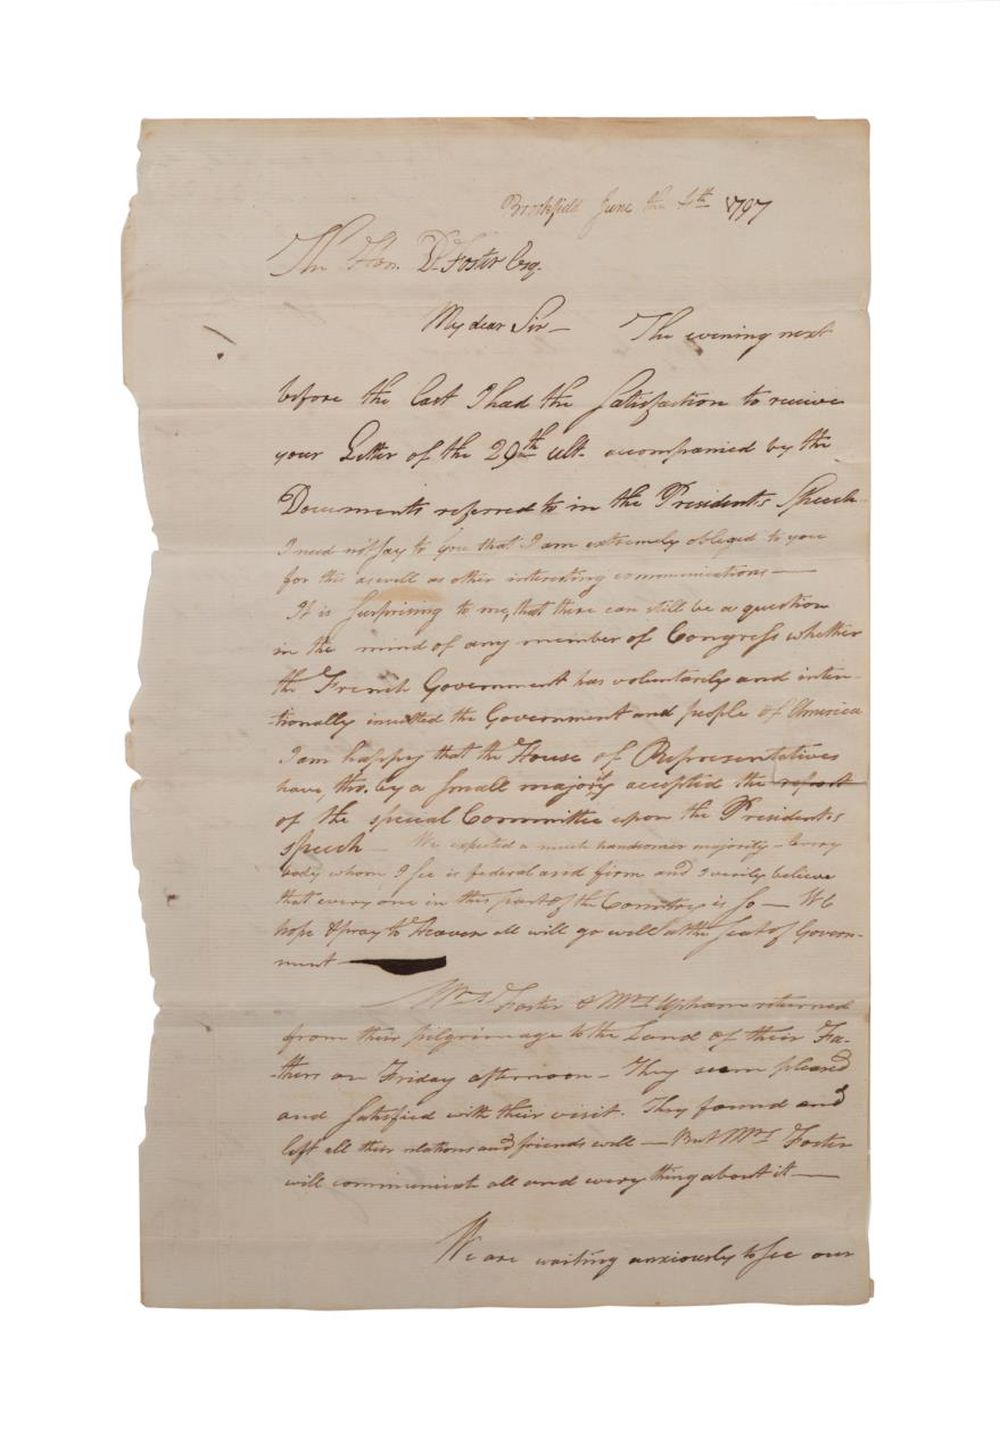 Brookfield June the 4th 1797
The Hon. D. Foster Esq.
My dear Sir — The evening next
before the last I had the satisfaction to receive
your Letter of the 29th ult. accompanied by the
Documents referred to in the President's Speech
I need not say to you that I am extremely obliged to you
for this as well as other interesting communications —
It is surprising to me, that there can still be a question
in the mind of any member of Congress whether
the French Government has voluntarily and inten-
tionally insulted the Government and people of America
I am happy that the House of Representatives
have, tho. by a small majority accepted the report
of the special Committee upon the President's
speech — We expected a much handsomer majority — Every
body whom I see is federal and firm and I verily believe
that every one in this part of the Country is so — We
hope & pray to Heaven all will go well at the seat of Govern-
ment —
Mrs Foster & Mrs Upham returned
from their pilgrimage to the Land of their Fa-
-thers on Friday afternoon — They seem pleased
and satisfied with their visit. They found and
left all their relations and friends well — But Mrs Foster
will communicate all and every thing about it —
We are waiting anxiously to see our